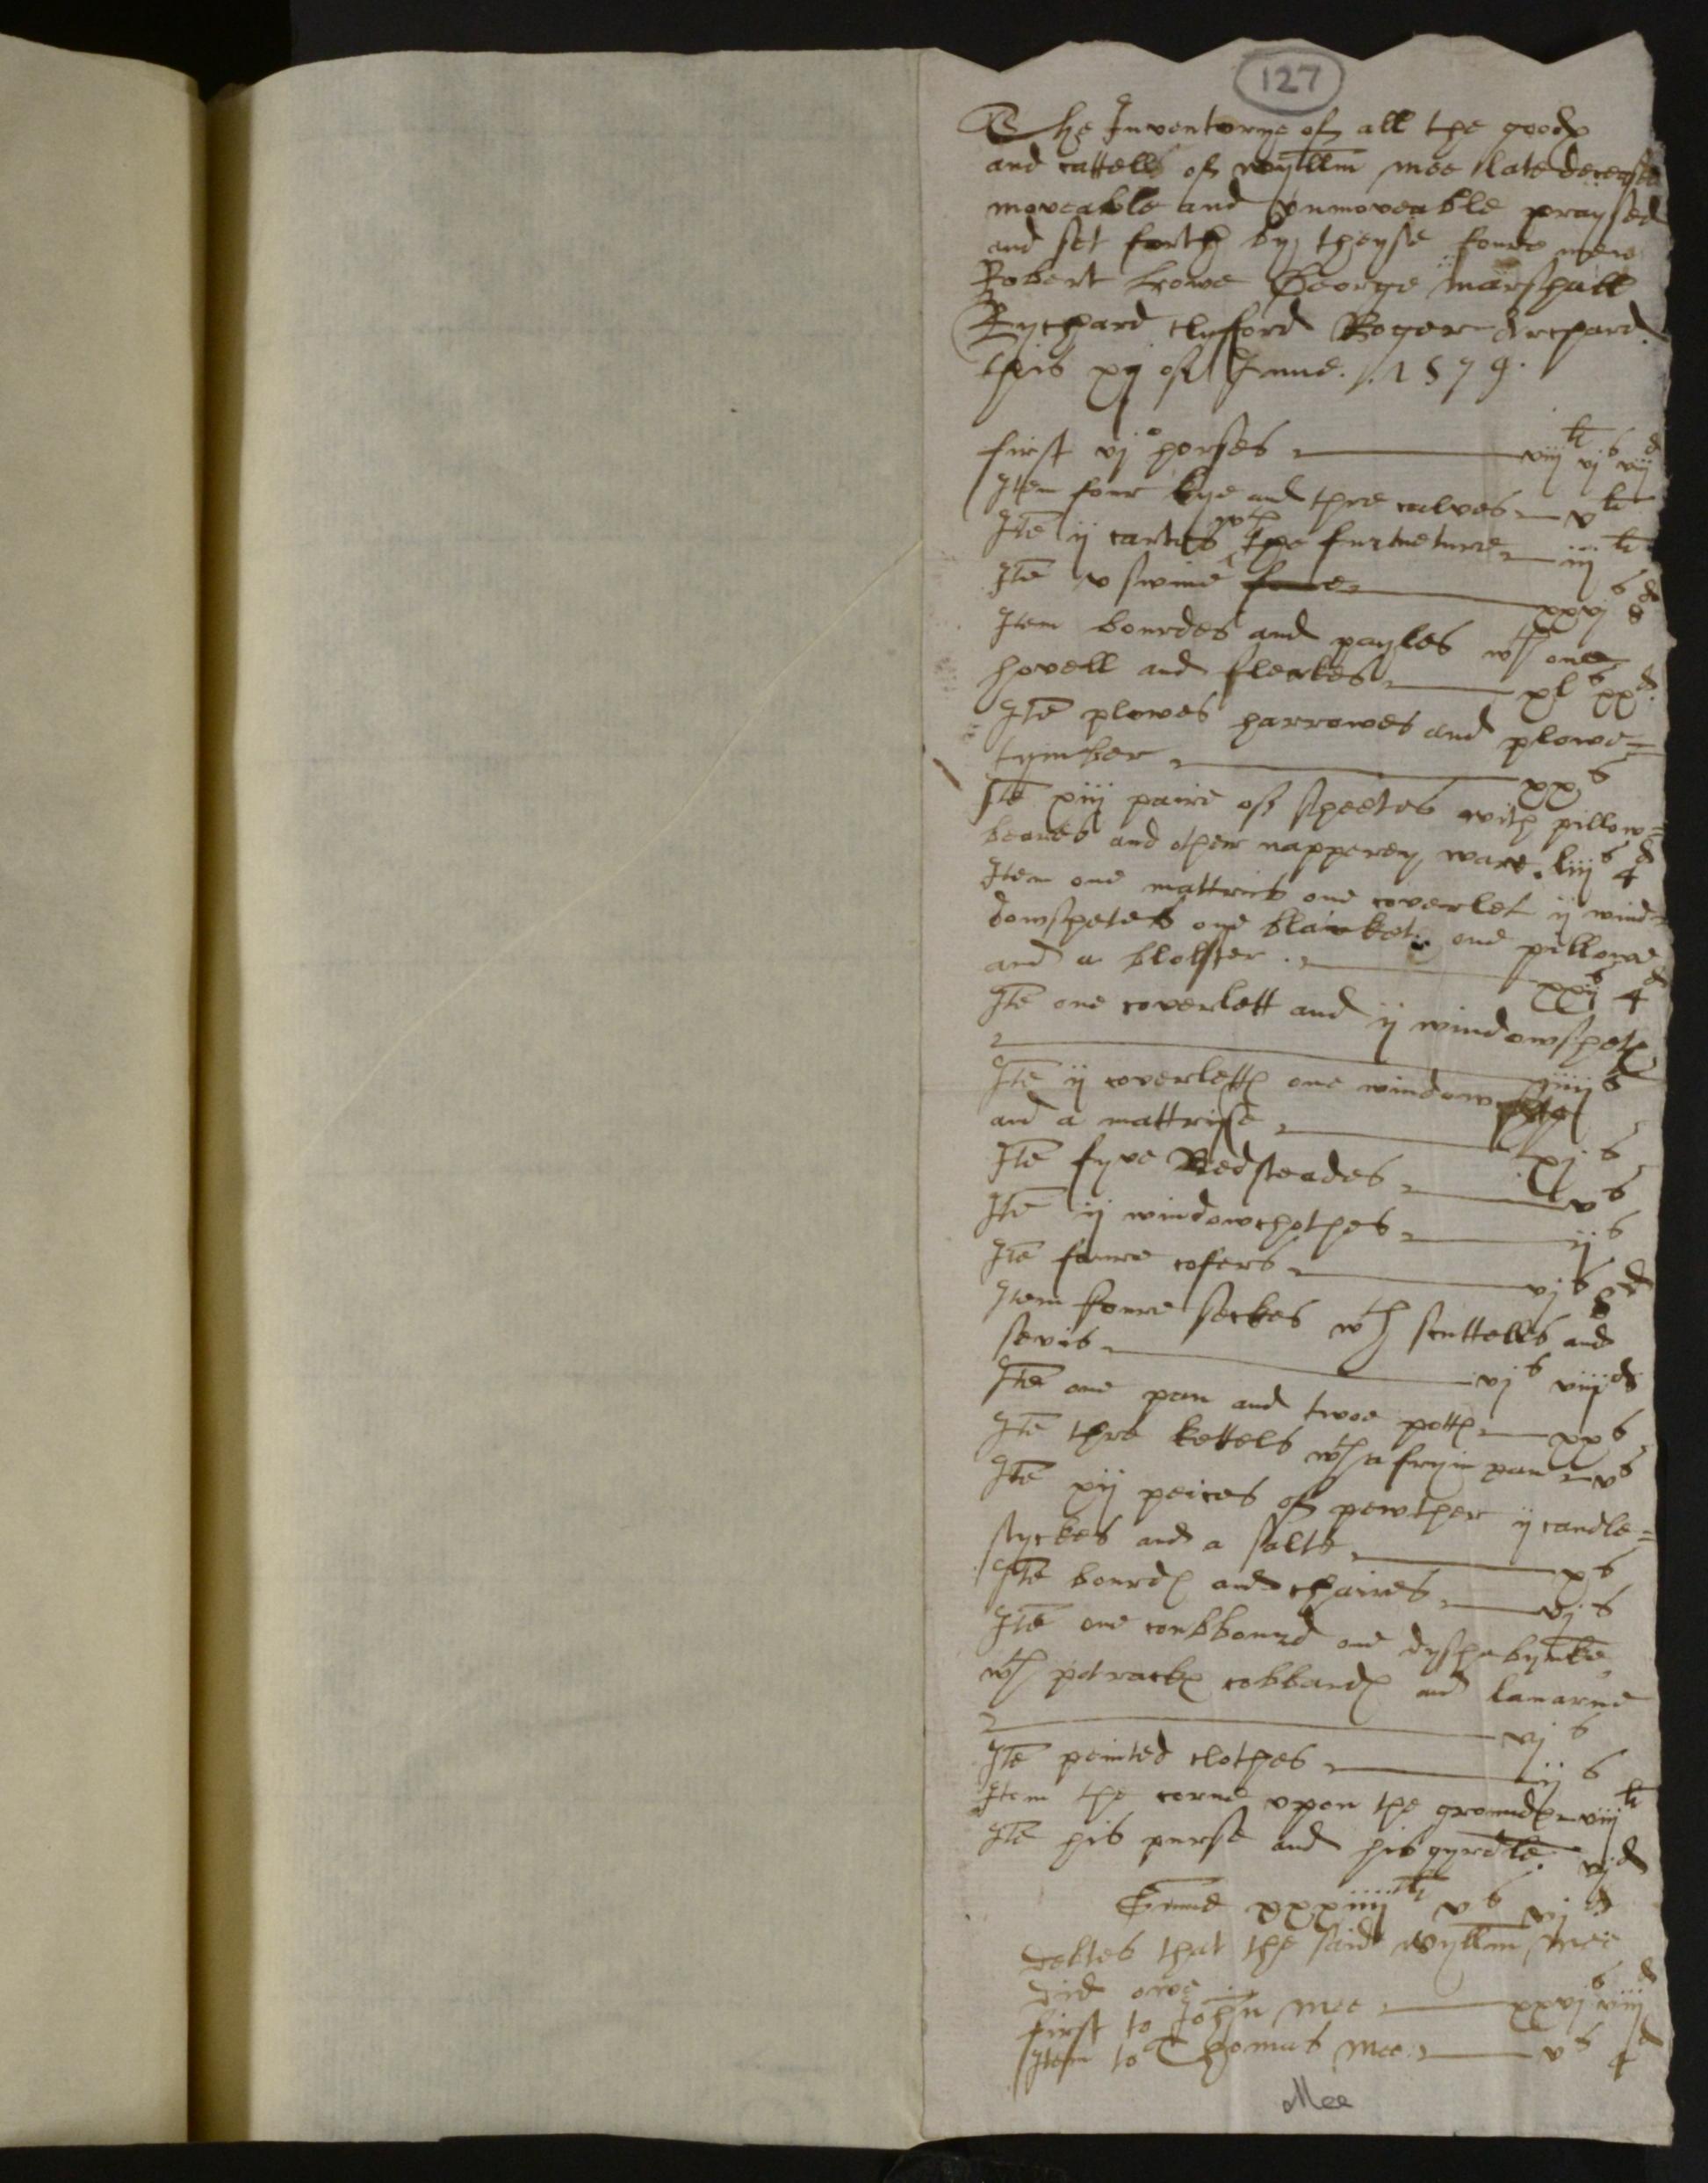 127
The Inventorye of all the goodes
and cattells of wyllm mee late deceassed
moveable and vnmoveable praysed
and set forth by theyse foure men
Robert Lowe George marshall
Rychard clyfford Roger Archard
this xij of June. 1579.
first vj horses viij li vj s viij d
Item four kye and thre calves v li
Ite ij cartes wth the furtneture iij li
Ite v swine xxvj s 8 d
Item bourdes and payles wth one
hovell and fleakes xl s xx d
Ite plowes harrowes and plowe=
tymber xx s
Ite xiij paire of sheetes with pillow=
beares and other napperey ware. liij s 4 d
Item one mattris one coverlet ij wind=
dowshetes one blanket one pillowe
and a blolster. xxij s 4 d
Ite one coverlett and ij windowshetes
iiij s
Ite ij coverlettes one windowshete
and a mattrisse xj s
Ite fyve Bedsteades v s
Ite ij windowchothes ij s
Ite foure cofers vj s 8 d
Item foure seckes wth scuttelles and
sevis vj s viij d
Ite one pan and twoe pottes xx s
Ite thre kettels wth a fryin pan v s
Ite xij peices of pewther ij candle=
styckes and a salte x s
Ite bourdes and chaires vj s
Ite one coubbourd one dyshebynke
wth potrackes cobbardes and lanarne
vj s
Ite peinted clothes ij s
Item the corne vpon the groundes viij li
Ite his purse and his gyrdle. vj d
Sume xxxiiij li v s vj d
debtes that the said wyllm mee
did owe
first to John mee xxvj s viij d
Item to Thomas mee v s 4 d
Mee